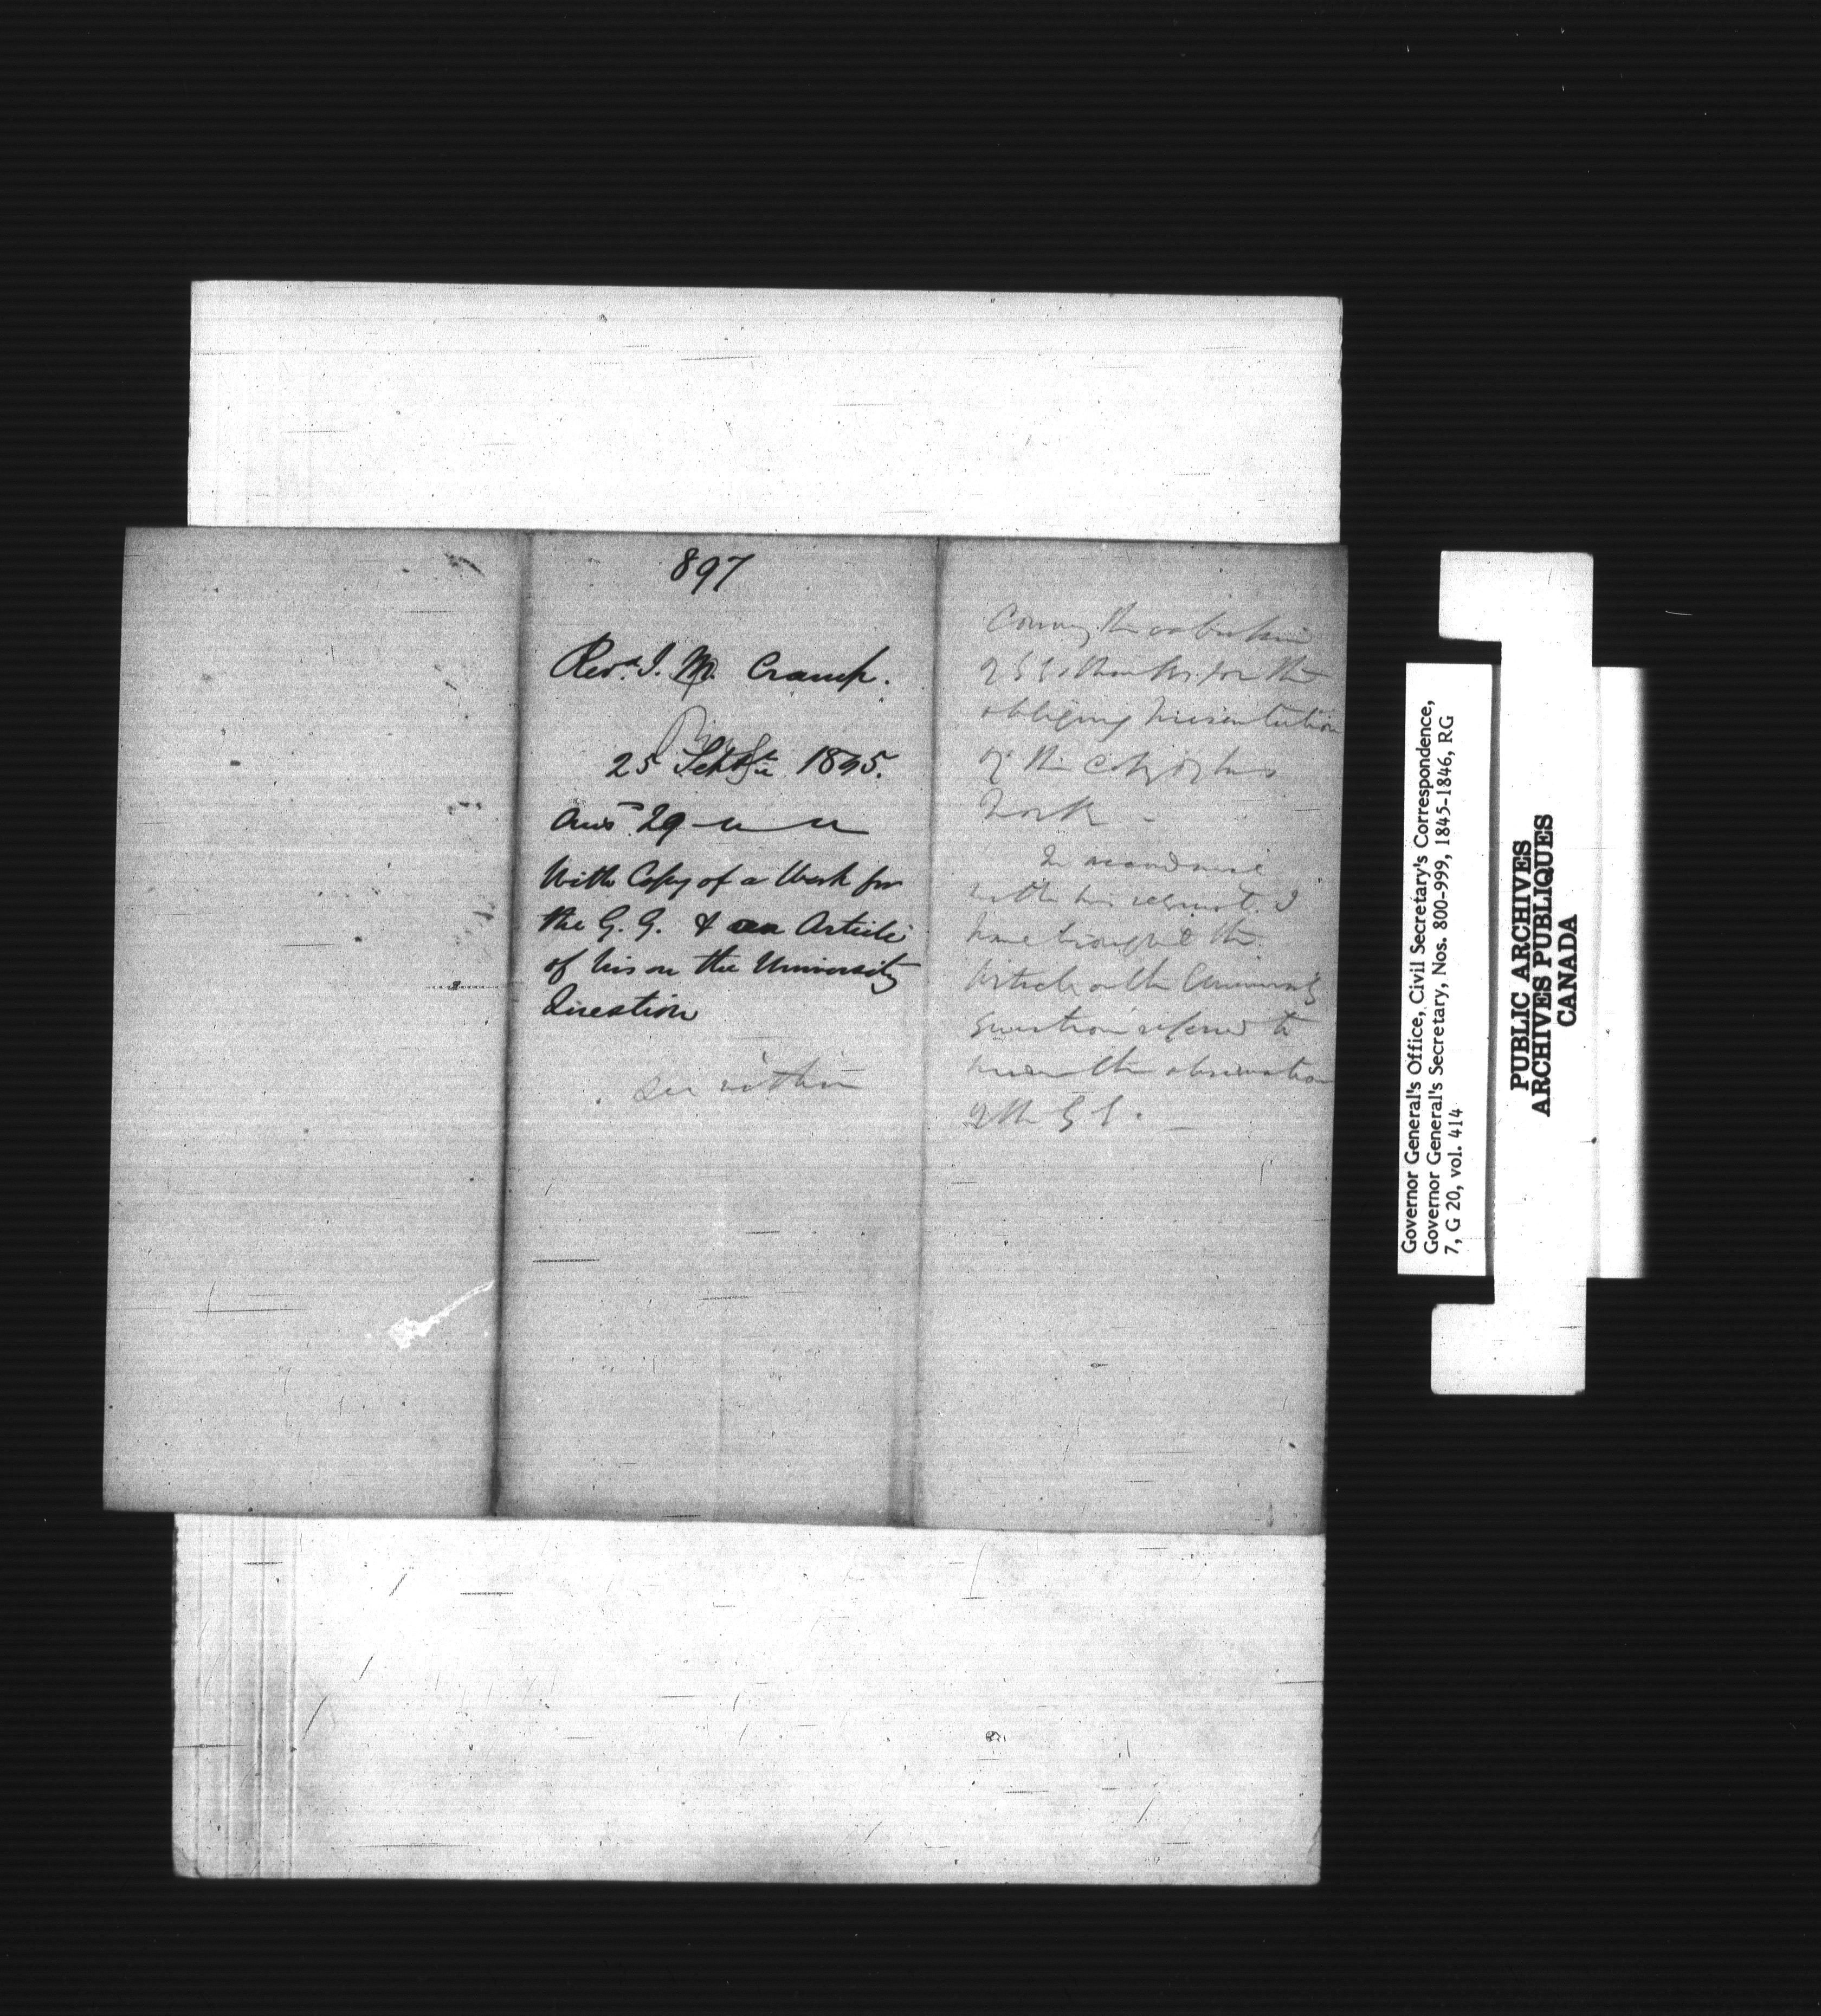 897
Revd. J. M. Cramp.
25 Septr 1845.
Ansd 29 — " — "
With Copy of a Work for
the G. G. & an Article
of his on the University
Question
See within
Convey the
of G G's thanks for the
obliging presentation
of the Copy of his
Work -
In accordance
with his request I
have brought the
Article on the University
question referred to
under the observation
of the G G. -
Governor General's Office, Civil Secretary's Correspondence,
Governor General's Secretary, Nos. 800-999, 1845-1846, RG
7, G 20, vol. 414
PUBLIC ARCHIVES
ARCHIVES PUBLIQUES
CANADA